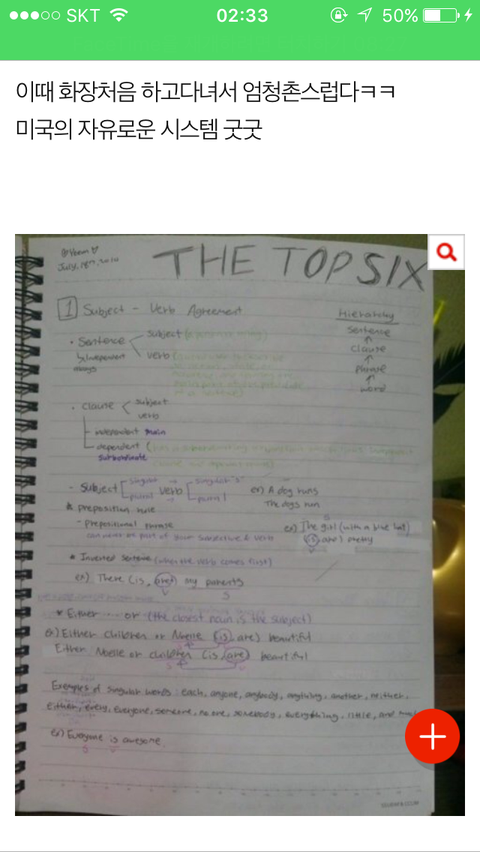 SKT 02:33 50%
이때 화장처음 하고다녀서 엄청촌스럽다ㅋㅋ
미국의 자유로운 시스템 굿굿
THE TOP SIX
1 Subject - Verb Agreement
Hierarchy
sentence
clause
phrase
word
• Sentence
subject
verb
• clause
subject
verb
independent main
dependent
subordinate
- Subject singular verb singular "s"
plural plural
ex) A dog runs
The dogs run
* preposition rule
- prepositional phrase
can never be part of your subject & verb
ex) The girl (with a blue hat)
(is, are) pretty
* Inverted sentence (when the verb comes first)
ex) There (is, are) my parents
V S
* Either ... or (the closest noun is the subject)
ex) Either children or Abelle (is, are) beautiful
Either Abelle or children (is, are) beautiful
Examples of singular words: each, anyone, anybody, anything, another, neither,
either, every, everyone, someone, no one, somebody, everything, little, and much
ex) Everyone is awesome.
S V